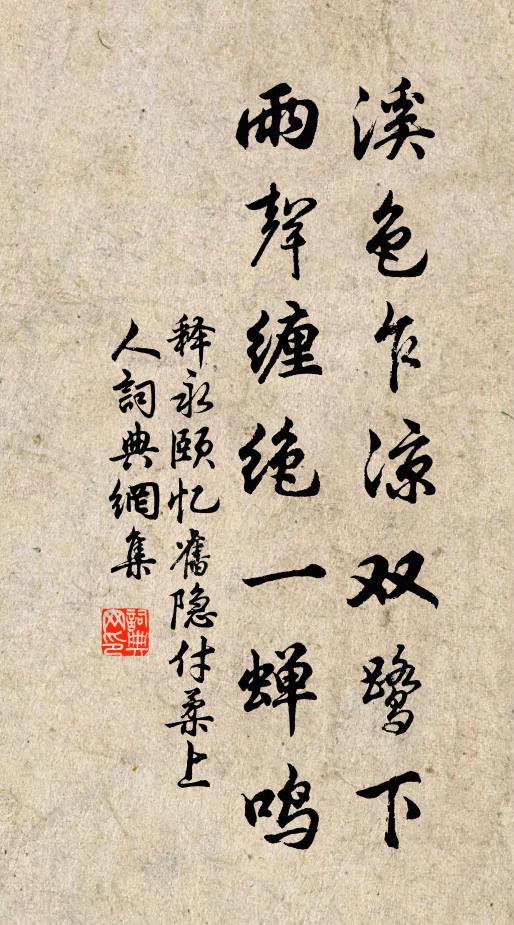 溪色乍凉双鹭下
雨聲缠绝一蝉鸣
释永颐忆舊隐付柔上
人詞典網集
詞典
网印